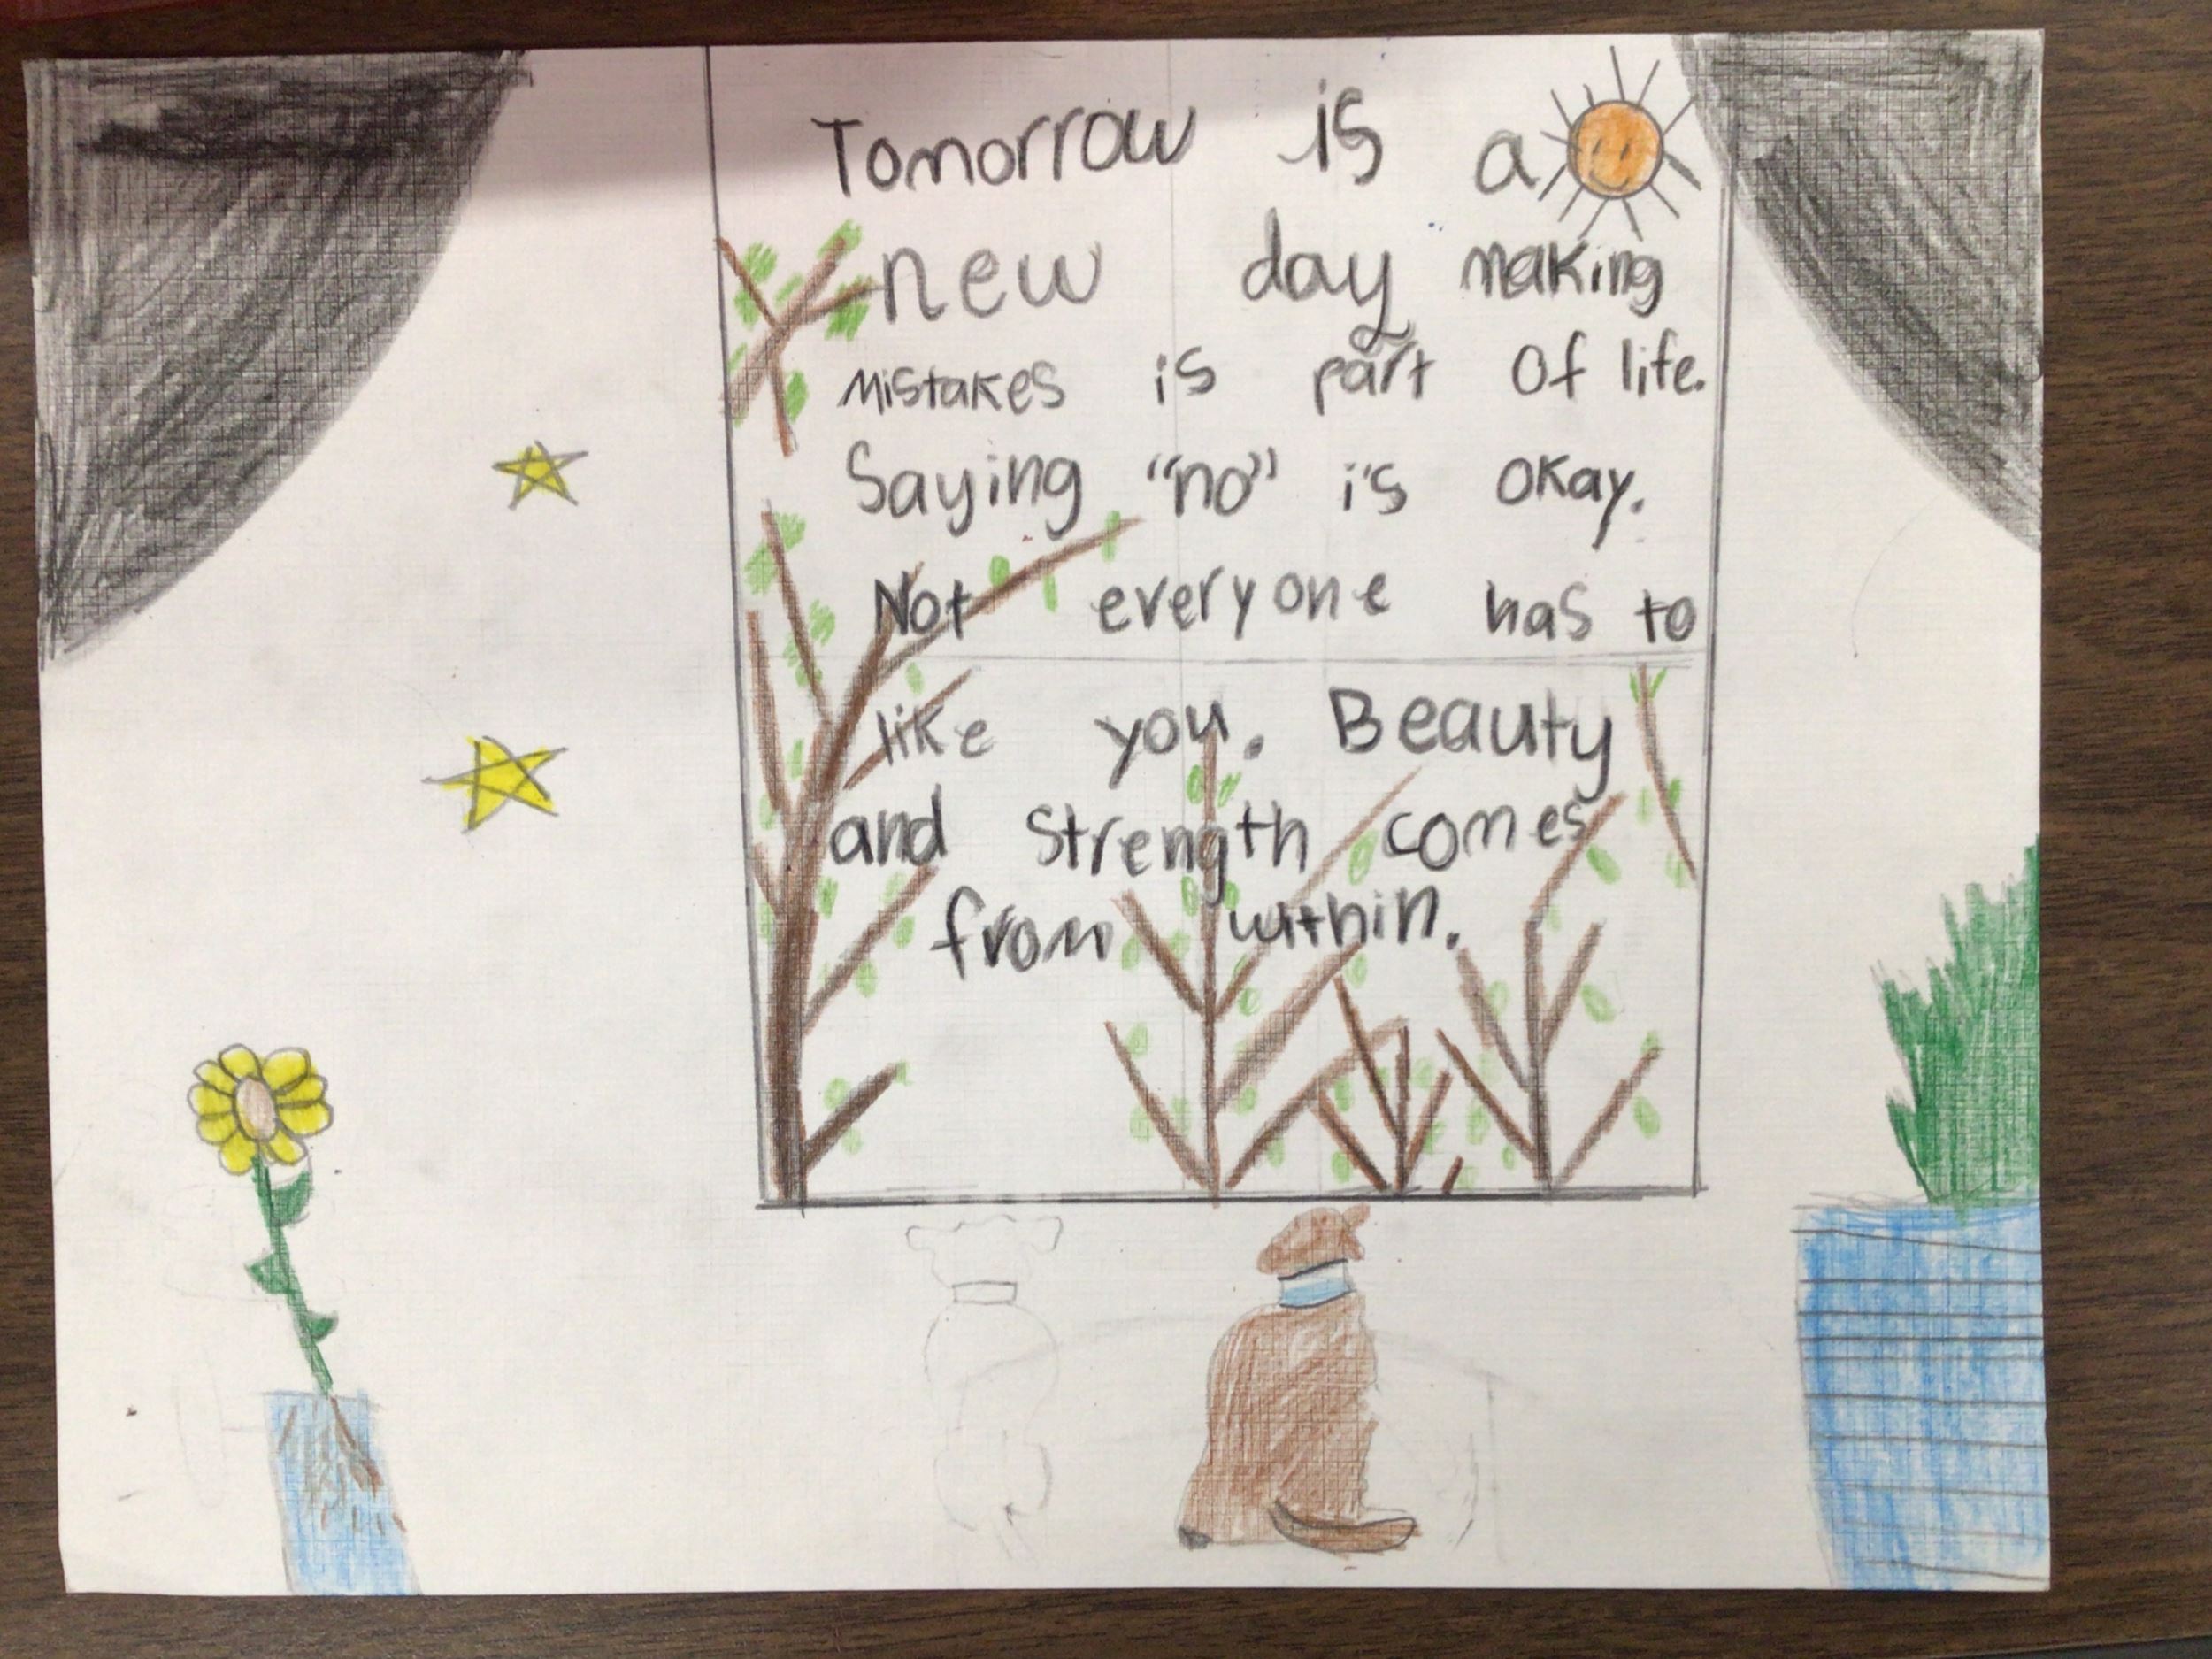 Tomorrow is a
new day making
mistakes is part of life.
Saying "no" is okay.
Not everyone has to
like you. Beauty
and strength comes
from within.